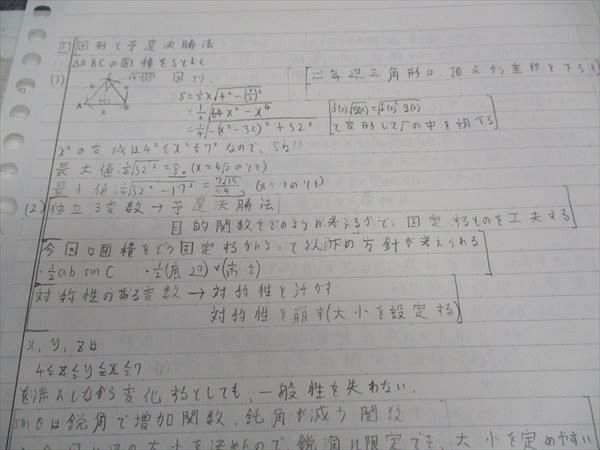 1 図形と予選決勝法
△ABCの面積をSとおく
(1) 図より
S = 1/2 x √(4² - (x/2)²)
= 1/4 √(64x² - x⁴)
= 1/4 √(-(x² - 32)² + 32²)
[二等辺三角形は、頂点から垂線を下ろす]
[f(x)√g(x) = √(f(x)² g(x)) と変形して√の中を調べる]
x²の 域は 4² ≦ x² ≦ 7² なので、
最大値 1/4 √32² = 8 (x = 4√2 のとき)
最小値 1/4 √(32² - 17²) = 7√15/4 (x = 7 のとき)
(2) [独立3変数 → 予選決勝法
目的関数をどのように考えるかで、固定するものを工夫する]
[今回は面積をどう固定するかによって以下の方針が考えられる
・1/2 ab sin C ・1/2 (底辺)×(高さ)]
[対称性のある変数 → 対称性を活かす
対称性を崩す(大小を設定する)]
x, y, z は
4 ≦ z ≦ y ≦ x ≦ 7
を満たしながら変化するとしても、一般性を失わない.
sin θは鋭角で増加関数、鈍角が減少関数
の大小を決めたので、鋭角に限定でき、大小を定めやすい